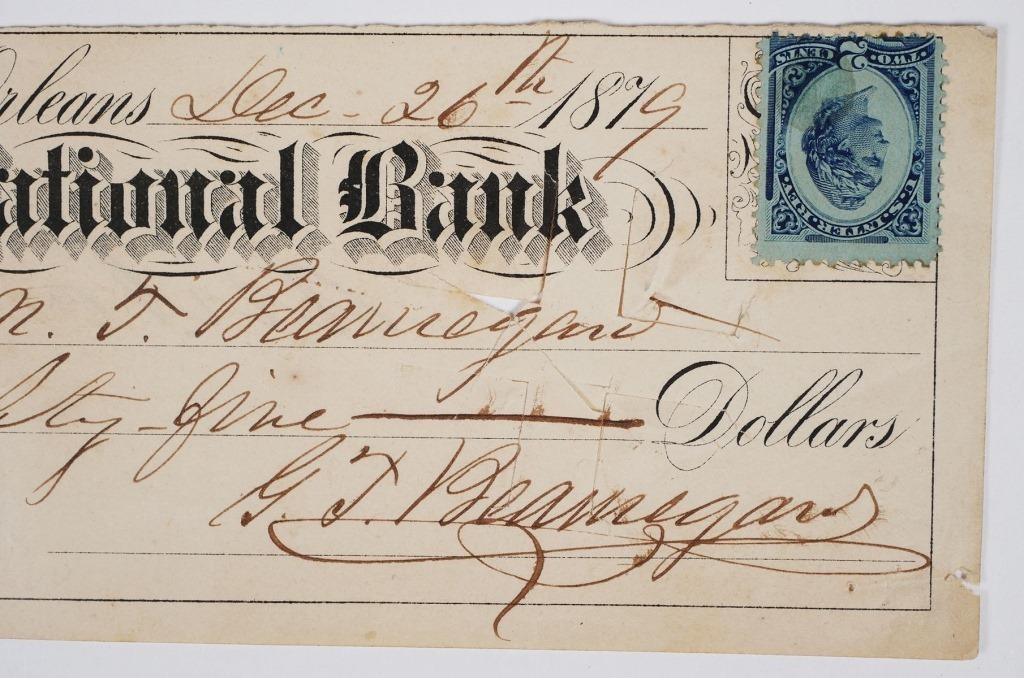 rleans Dec. 26th 1879
ational Bank
n. T. Beauregard
ty-five Dollars
G. T. Beauregard
TWO 2 CENTS
U.S. INTER. REV.